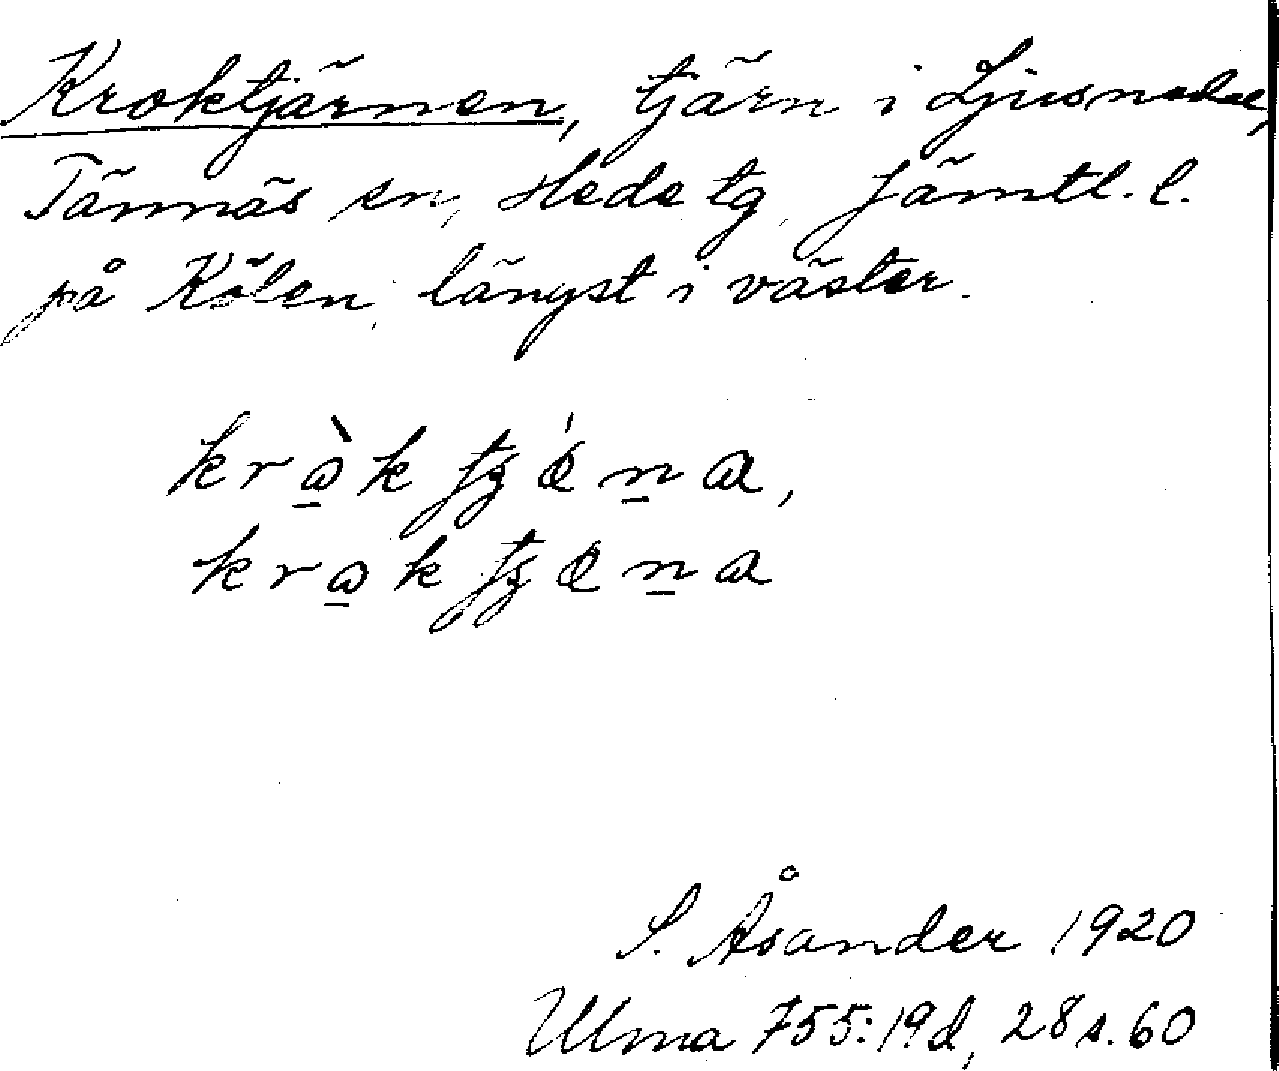 Kroktjärnen, tjärn i Ljusnedal,
Tännäs sn, Hede tg, Jämtl. l.
på Kölen, längst i väster.
S. Åsander 1920
Ulma 755:19d, 28 s. 60